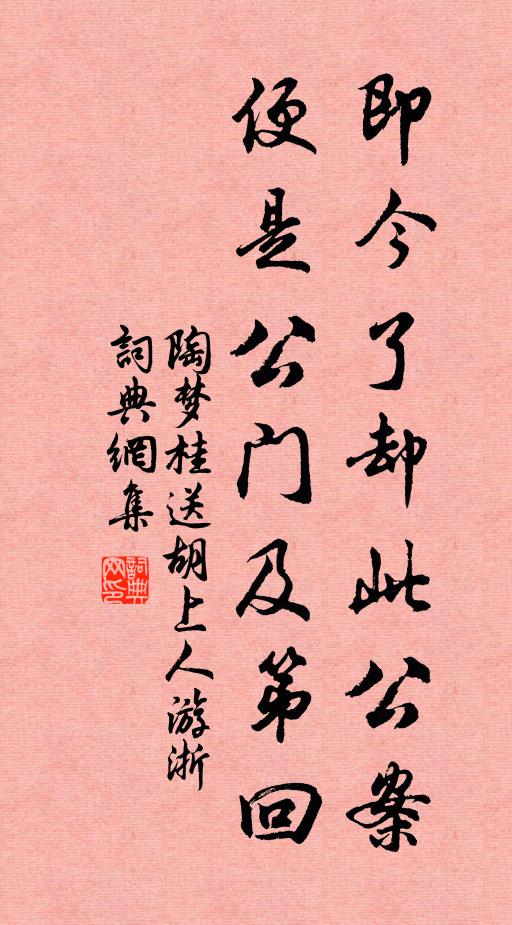 即今了却此公案
便是公门及第回
陶梦桂送胡上人游浙
詞典網集
詞典网印